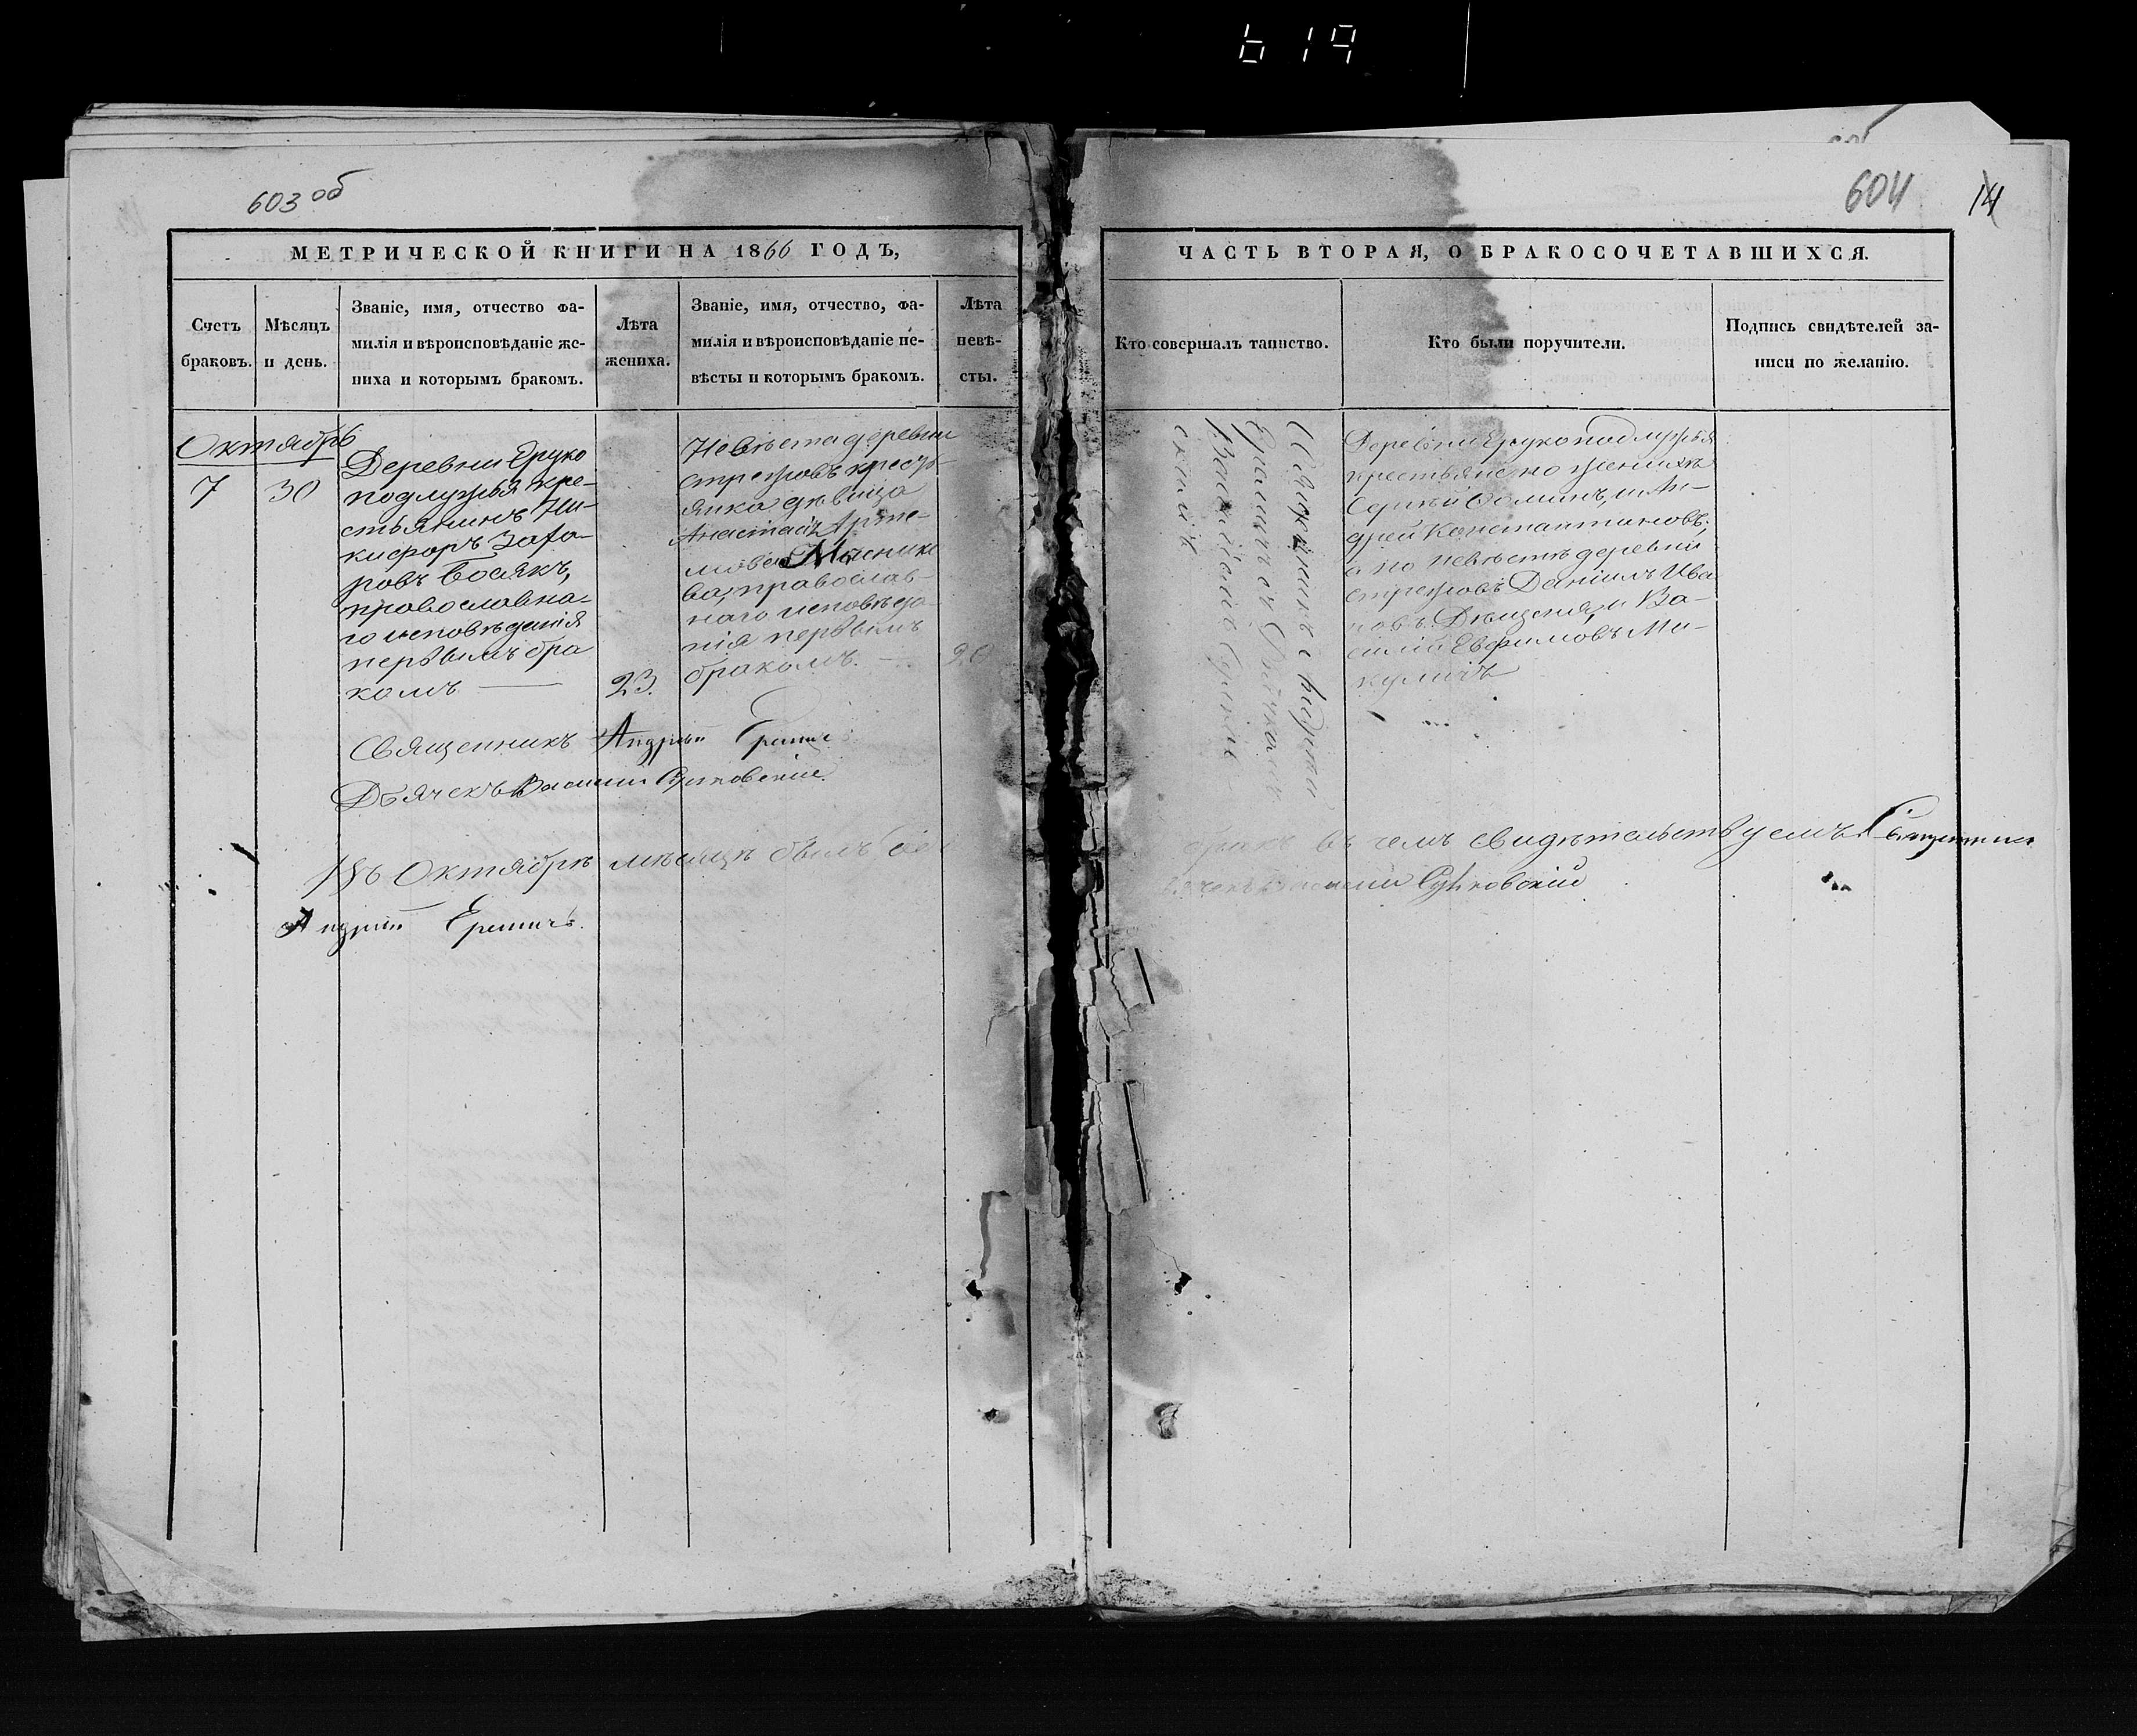 619
603 об
604
14
МЕТРИЧЕСКОЙ КНИГИ НА 1866 ГОДЪ,
ЧАСТЬ ВТОРАЯ, О БРАКОСОЧЕТАВШИХСЯ.
Счетъ
браковъ.
Мѣсяцъ
и день.
Званіе, имя, отчество фа-
милія и вѣроисповѣданіе же-
ниха и которымъ бракомъ.
Лѣта
жениха.
Званіе, имя, отчество, фа-
милія и вѣроисповѣданіе не-
вѣсты и которымъ бракомъ.
Лѣта
невѣ-
сты.
Кто совершалъ таинство.
Кто были поручители.
Подпись свидѣтелей за-
писи по желанію.
Октябрь
7
30
Деревни Еруко
подлужья кре-
стьянинъ Ни-
кифоръ Заха-
ровъ Босякъ,
православна-
го исповѣданія
первымъ бра
комъ
23.
Невѣста деревни
крестъ-
янка дѣвица
Анастасія Арте-
мова
православ-
наго исповѣда-
нія первымъ
бракомъ.
20
Священникъ
Василій
скій
Деревни Ерукоподлужья
крестьяне по женихѣ
Сергѣй Ѳоминъ, и Ан-
дрей Константиновъ;
а по невѣстѣ деревни
Даніилъ Ива
новъ и Ва-
силій Евфимовъ Ми-
куличъ
Священникъ Андрей
Дьячекъ Василій
Въ Октябрѣ мѣсяцѣ былъ
бракъ въ чемъ свидѣтельствуемъ Священникъ
Андрей
Василій